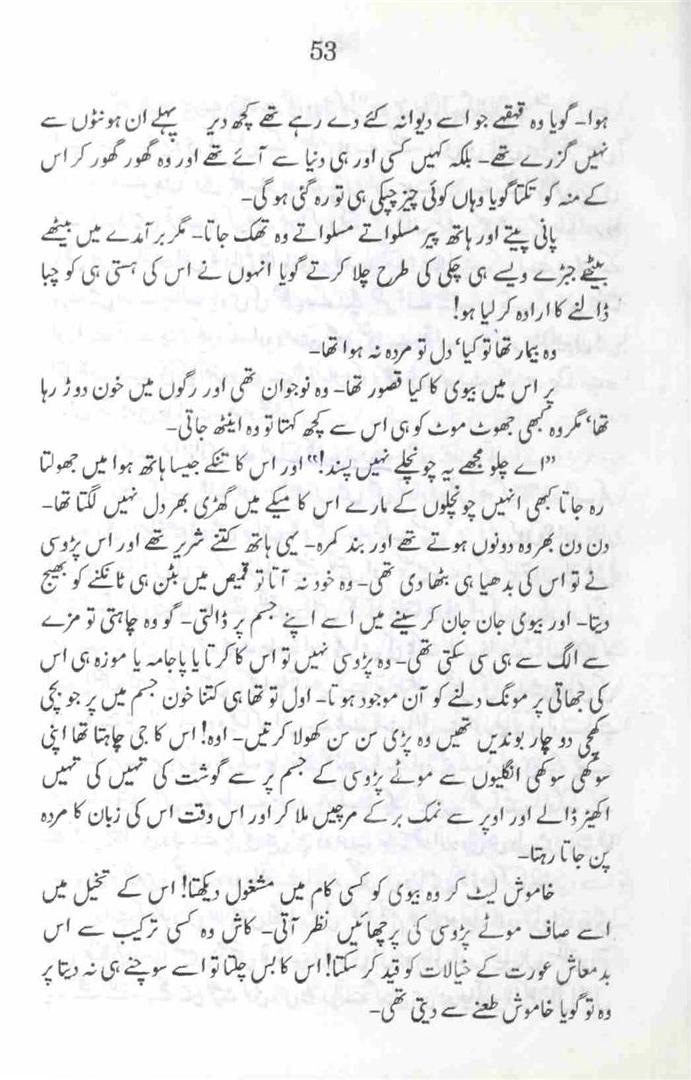 53
ہوا۔ گویا وہ قہقہے جو اسے دیوانہ کئے دے رہے تھے کچھ دیر پہلے ان ہونٹوں سے
نہیں گزرے تھے۔ بلکہ کہیں کسی اور ہی دنیا سے آئے تھے اور وہ گھور گھور کر اس
کے منہ کو تکتا گویا وہاں کوئی چیز چپکی ہی تو رہ گئی ہو گی۔
پانی پیتے اور ہاتھ پیر مسلواتے مسلواتے وہ تھک جاتا۔ مگر برآمدے میں بیٹھے
بیٹھے جبڑے ویسے ہی چکی کی طرح چلا کرتے گویا انہوں نے اس کی ہستی ہی کو چبا
ڈالنے کا ارادہ کر لیا ہو!
وہ بیمار تھا تو کیا، دل تو مردہ نہ ہوا تھا۔
پر اس میں بیوی کا کیا قصور تھا۔ وہ نوجوان تھی اور رگوں میں خون دوڑ رہا
تھا، مگر وہ کبھی جھوٹ موٹ کو ہی اس سے کچھ کہتا تو وہ اینٹھ جاتی۔
"اے چلو مجھے یہ چونچلے نہیں پسند!" اور اس کا تنکے جیسا ہاتھ ہوا میں جھولتا
رہ جاتا کبھی انہیں چونچلوں کے مارے اس کا میکے میں گھڑی بھر دل نہیں لگتا تھا۔
دن دن بھر وہ دونوں ہوتے تھے اور بند کمرہ۔ یہی ہاتھ کتنے شریر تھے اور اس پڑوسی
نے تو اس کی بدھیا ہی بٹھا دی تھی۔ وہ خود نہ آتا تو قمیص میں بٹن ہی ٹانکنے کو بھیج
دیتا۔ اور بیوی جان جان کر سینے میں اسے اپنے جسم پر ڈالتی۔ گو وہ چاہتی تو مزے
سے الگ سے ہی سی سکتی تھی۔ وہ پڑوسی نہیں تو اس کا کرتا یا پاجامہ یا موزہ ہی اس
کی چھاتی پر مونگ دلنے کو آن موجود ہوتا۔ اول تو تھا ہی کتنا خون جسم میں پر جو بچی
کھچی دو چار بوندیں تھیں وہ پڑی سن سن کھولا کرتیں۔ اوہ! اس کا جی چاہتا تھا اپنی
سوکھی سوکھی انگلیوں سے موٹے پڑوسی کے جسم پر سے گوشت کی تہیں کی تہیں
اکھیڑ ڈالے اور اوپر سے نمک بر کے مرچیں ملا کر اور اس وقت اس کی زبان کا مردہ
پن جاتا رہتا۔
خاموش لیٹ کر وہ بیوی کو کسی کام میں مشغول دیکھتا! اس کے تخیل میں
اسے صاف موٹے پڑوسی کی پرچھائیں نظر آتی۔ کاش وہ کسی ترکیب سے اس
بدمعاش عورت کے خیالات کو قید کر سکتا! اس کا بس چلتا تو اسے سوچنے ہی نہ دیتا پر
وہ تو گویا خاموش طعنے سے دیتی تھی۔